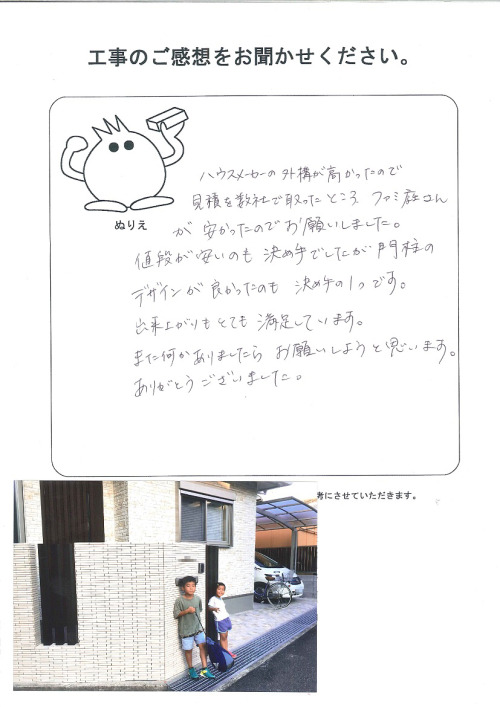 工事のご感想をお聞かせください。
ぬりえ
ハウスメーカーの外構が高かったので
見積を数社で取ったところ ファミ庭さん
が安かったのでお願いしました。
値段が安いのも 決め手でしたが 門柱の
デザインが良かったのも 決め手の1つです。
出来上がりもとても 満足しています。
また何かありましたら お願いしようと思います。
ありがとうございました。
考にさせていただきます。